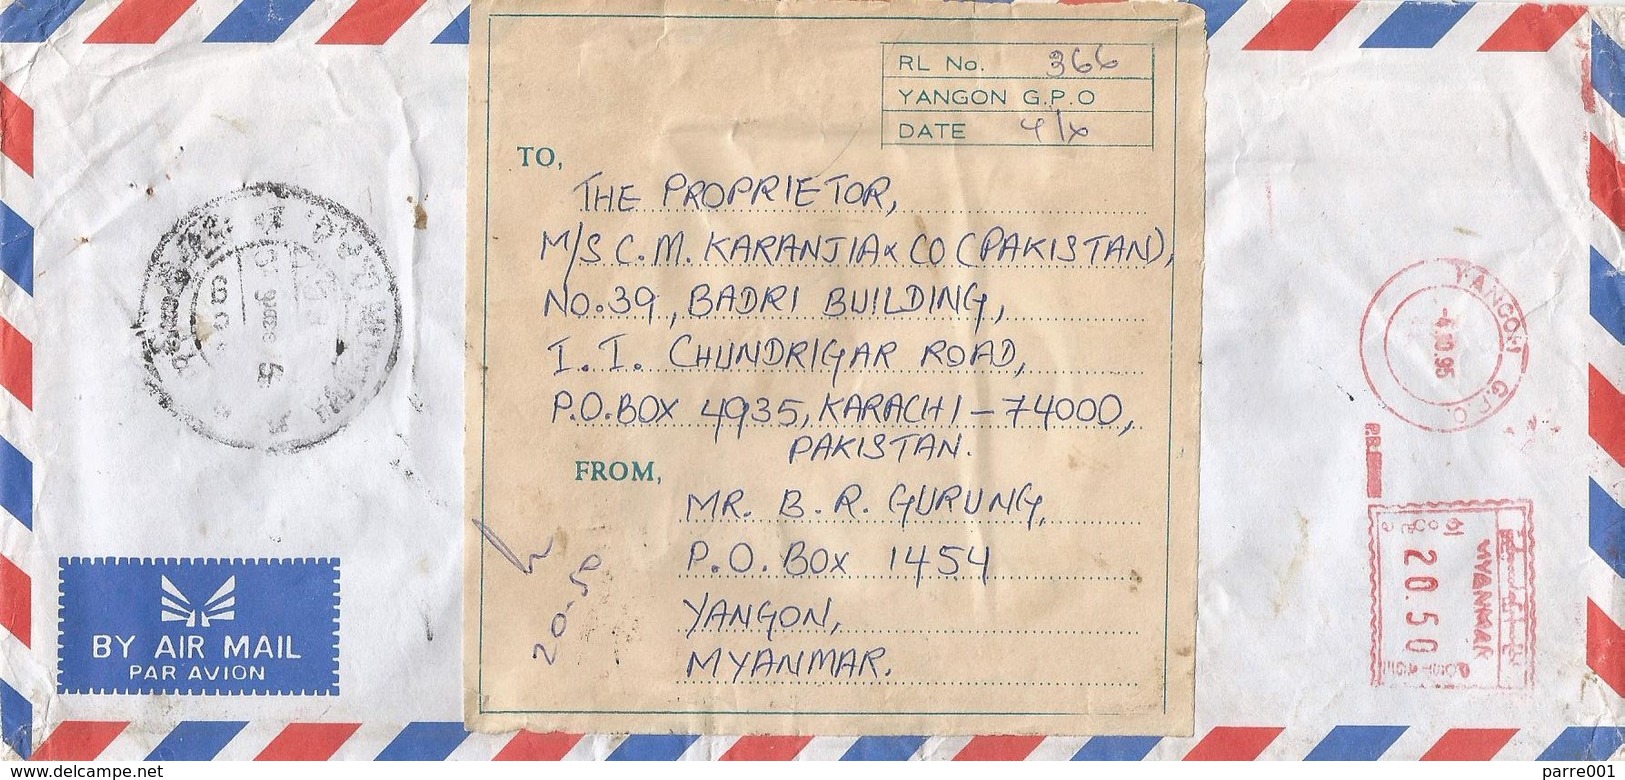 RL No. 366
YANGON G.P.O
DATE 4/x
TO,
THE PROPRIETOR,
M/S C.M. KARANJIA & CO (PAKISTAN),
NO.39, BADRI BUILDING,
I.I. CHUNDRIGAR ROAD,
P.O.BOX 4935, KARACHI-74000,
PAKISTAN.
FROM,
MR. B.R. GURUNG,
P.O. BOX 1454
YANGON,
MYANMAR.
20.50
BY AIR MAIL
PAR AVION
YANGON G.P.O.
-4.10.95
MYANMAR
20.50
POSTAGE
www.delcampe.net
parre001